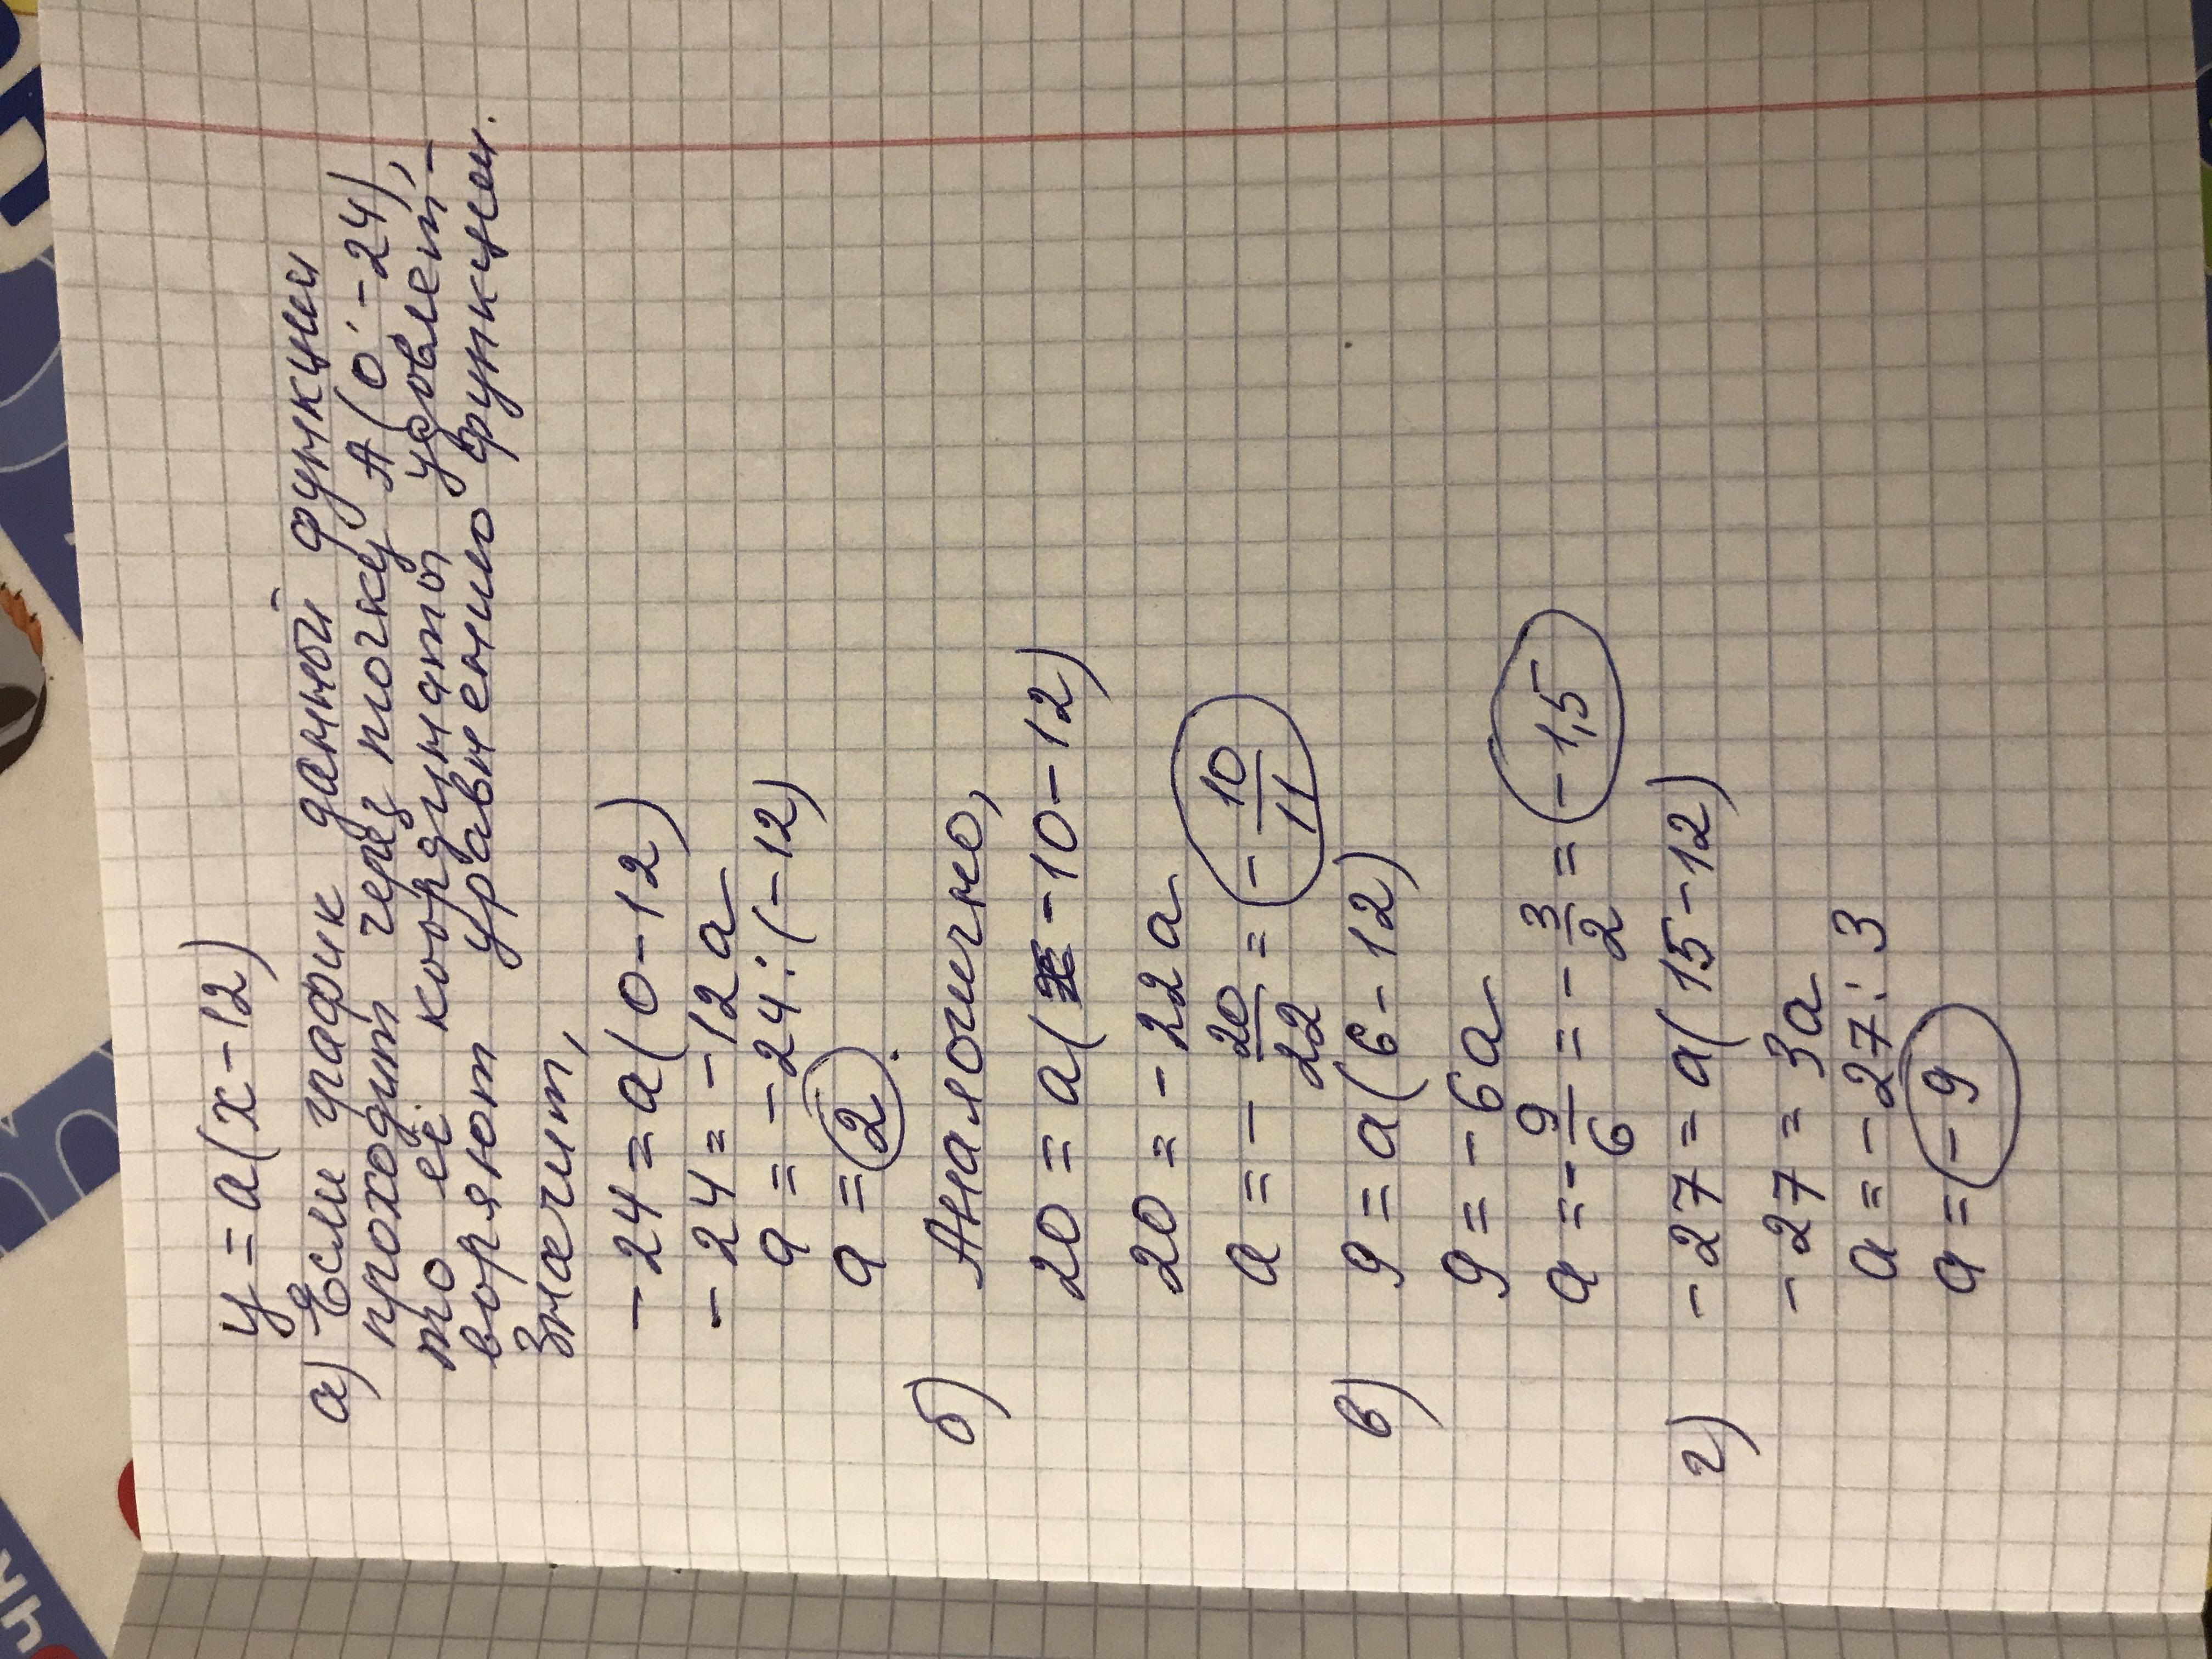 y = a(x-12)
а) Если график данной функции
проходит через точку А(0; -24),
то её координаты удовлет-
воряют уравнению функции.
Значит,
- 24 = a(0-12)
- 24 = -12a
a = -24 : (-12)
a = 2.
б) Аналогично,
20 = a(-10-12)
20 = -22a
a = - 20/22 = - 10/11
в) 9 = a(6-12)
9 = -6a
a = - 9/6 = - 3/2 = - 1,5
г) -27 = a(15-12)
-27 = 3a
a = -27 : 3
a = -9